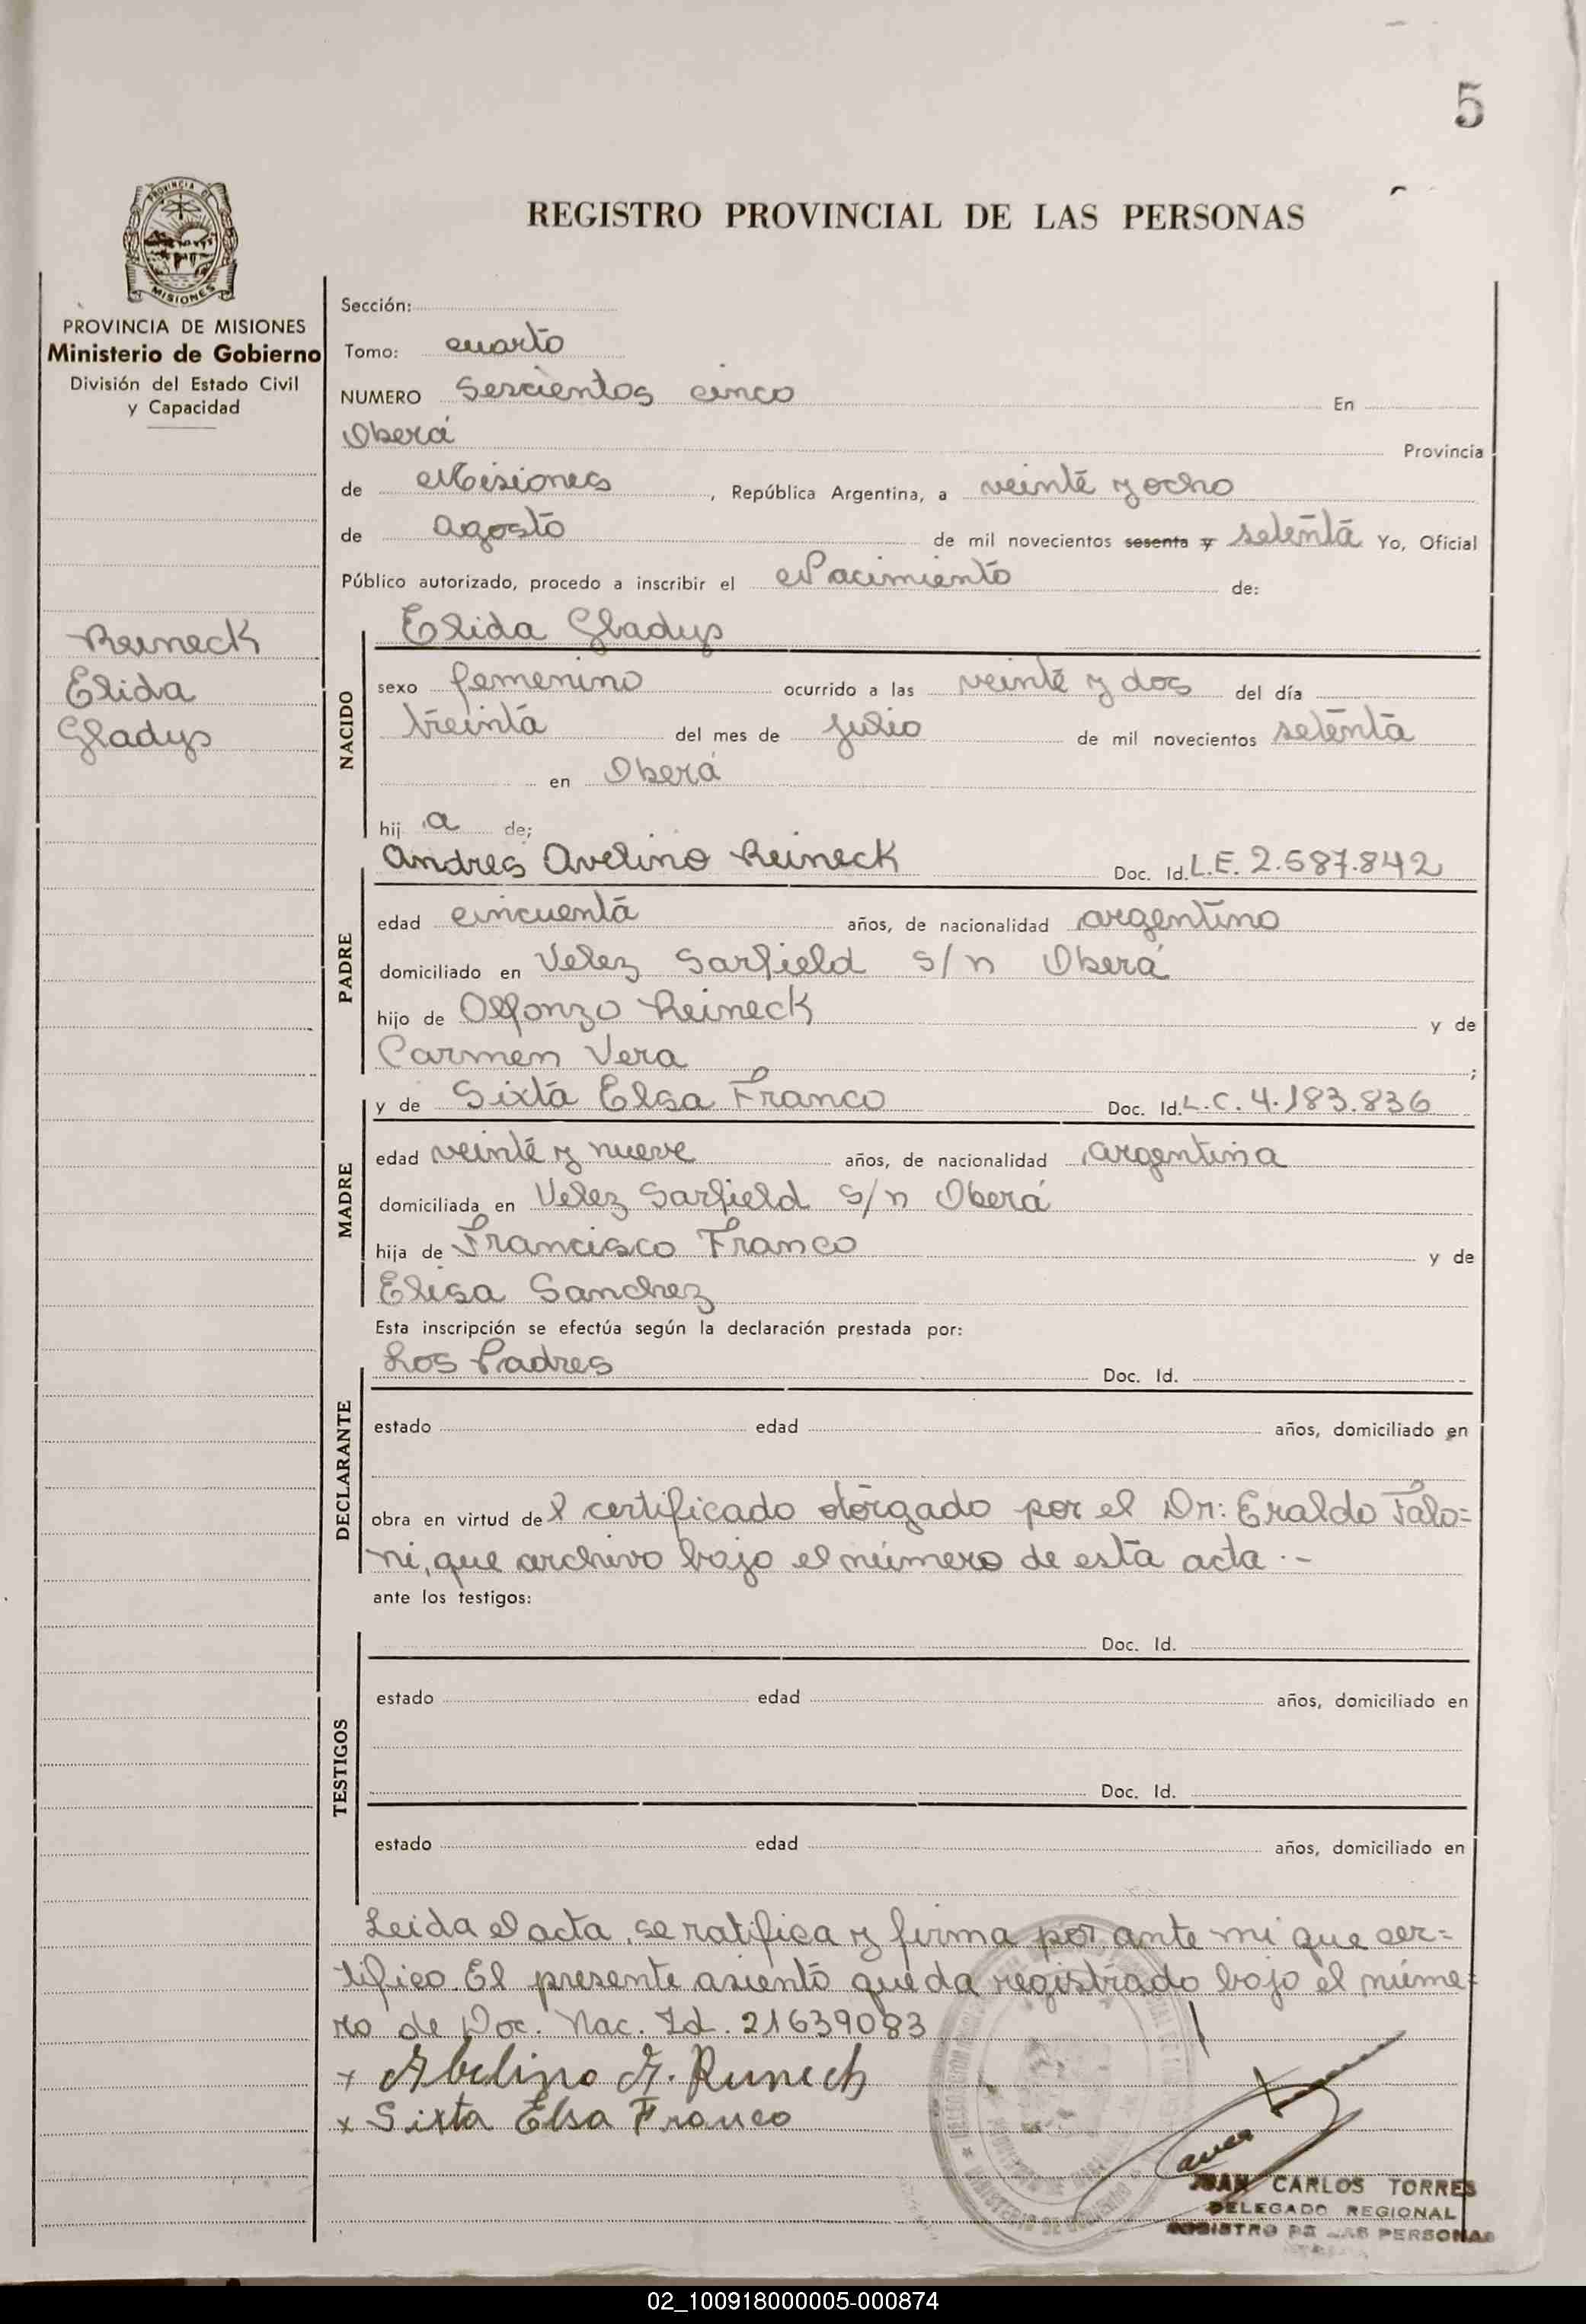 5
PROVINCIA DE
MISIONES
REGISTRO PROVINCIAL DE LAS PERSONAS
PROVINCIA DE MISIONES
Ministerio de Gobierno
División del Estado Civil
y Capacidad
Reineck
Elida
Gladys
Sección:
Tomo: cuarto
NUMERO Seiscientos cinco En
Oberá Provincia
de Misiones, República Argentina, a veinte y ocho
de agosto de mil novecientos sesenta y setenta Yo, Oficial
Público autorizado, procedo a inscribir el Nacimiento de:
NACIDO
Elida Gladys
sexo femenino ocurrido a las veinte y dos del día
treinta del mes de julio de mil novecientos setenta
en Oberá
hij a de;
PADRE
Andres Avelino Reineck Doc. Id. L.E. 2.587.842
edad cincuenta años, de nacionalidad argentino
domiciliado en Velez Sarfield s/n Oberá
hijo de Alfonzo Reineck y de
Carmen Vera ;
MADRE
y de Sixta Elsa Franco Doc. Id. L.C. 4.183.836
edad veinte y nueve años, de nacionalidad argentina
domiciliada en Velez Sarfield s/n Oberá
hija de Francisco Franco y de
Elisa Sanchez
Esta inscripción se efectúa según la declaración prestada por:
DECLARANTE
Los Padres Doc. Id.
estado edad años, domiciliado en
obra en virtud del certificado otorgado por el Dr: Eraldo Falo=
ni, que archivo bajo el número de esta acta.-
ante los testigos:
TESTIGOS
Doc. Id.
estado edad años, domiciliado en
Doc. Id.
estado edad años, domiciliado en
Leida el acta, se ratifica y firma por ante mi que cer=
tifico. El presente asiento queda registrado bajo el núme=
ro de Doc. Nac. Id. 21639083
x Abelino A. Runech
x Sixta Elsa Franco
JUAN CARLOS TORRES
DELEGADO REGIONAL
REGISTRO DE LAS PERSONAS
02_100918000005-000874